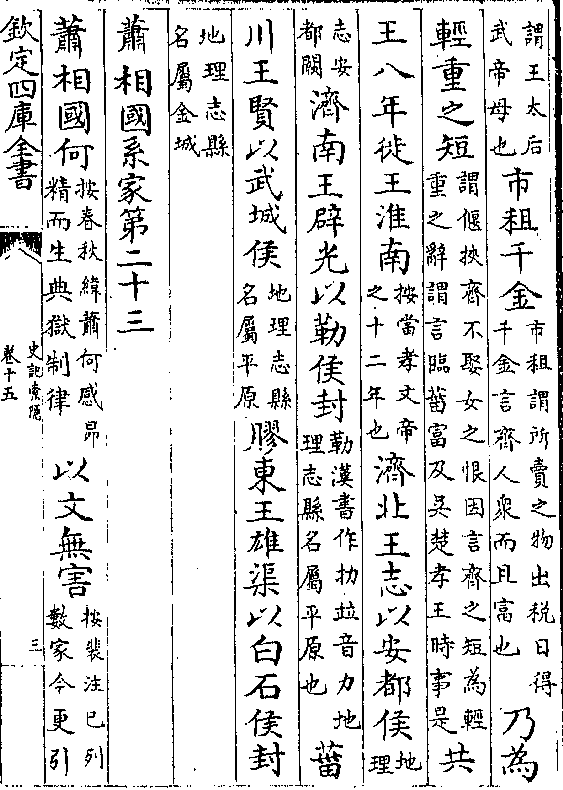 謂王太后
武帝母也
市租千金
市租謂所賣之物出税日得
千金言齊人衆而且富也
乃為
輕重之短
謂偃挾齊不娶女之恨因言齊之短為輕
重之辭謂言臨菑富及吳楚孝王時事是
共
王八年徙王淮南
按當孝文帝
之十二年也
濟北王志以安都侯
地理
志安
都闕
濟南王辟光以勒侯封
勒漢書作朸竝音力地
理志縣名屬平原也
菑
川王賢以武城侯
地理志縣
名屬平原
膠東王雄渠以白石侯封
地理志縣
名屬金城
蕭相國系家第二十三
蕭相國何
按春秋緯蕭何感昴
精而生典獄制律
以文無害
按裴注已列
數家今更引
欽定四庫全書
史記索隱
卷十五
三